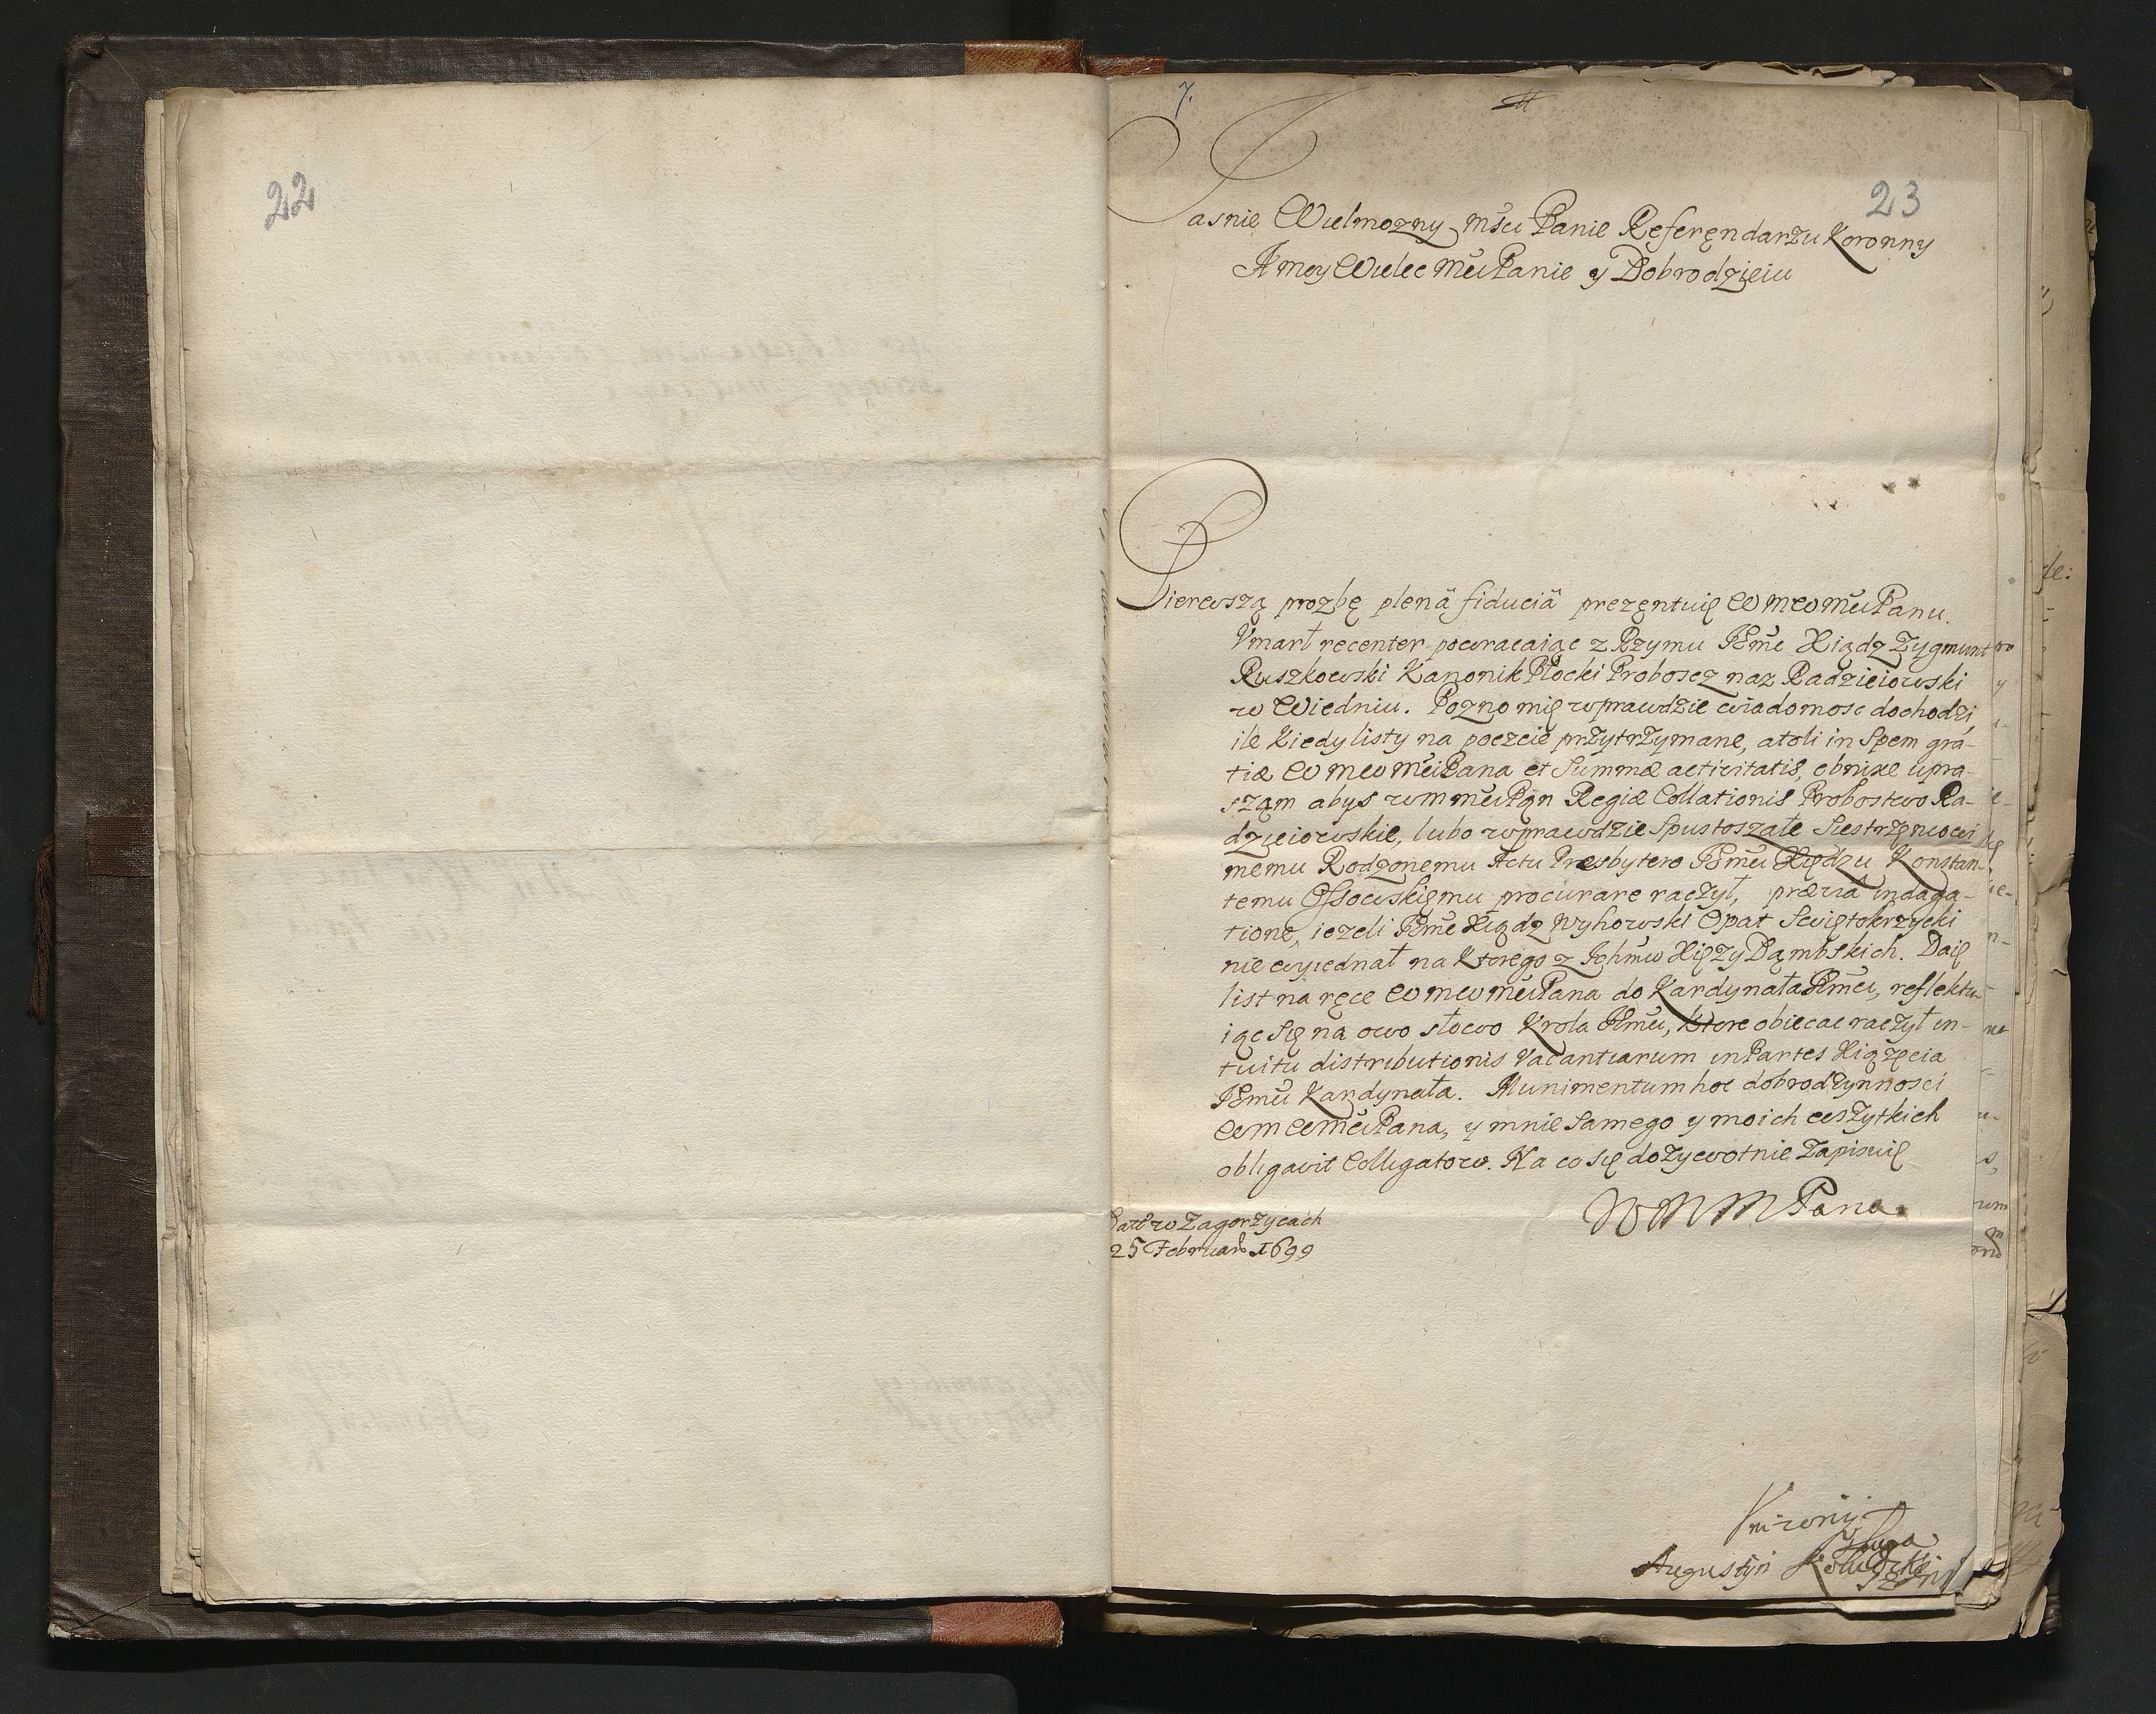 22
7.
23
Jasnie Wielmozny mśći Panie Referęndarzu Koronny
A moy Wielce Mći Panie y Dobrodzieiu
Pierwszą prozbę plenâ fiduciâ prezęntuię WMWMći Panu.
Vmarł recenter powracaiąc z Rzymu JEmć Xiądz Zygmunt
Ruszkowski Kanonik Płocki Proboscz naz Radzieiowski
w Wiedniu. Pozno mię wprawdzie wiadomosc dochodzi,
ile kiedy listy na poczcie przytrzymane, atoli in Spem gra-
tiæ WMWMći Pana et Summæ activitatis, obnixe upra-
sząm abys wmmći Pąn Regiæ Collationis Probostwo Ra-
dzieiowskie, lubo wprawdzie spustoszałe Siestrzęncowi
memu Rodzonemu Actu Presbytero JEmći Xiędzu Konstan-
temu Ossowskięmu procurare raczył, præviâ indaga-
tione, iezeli JEmć Xiądz Wyhowski Opat Swiętokrzycki
nie wyiednał na ktorego z Ichmw Xięży Dąmbskich. Daię
list na ręce WMWMći Pana do Kardynała JEmci, reflektu-
iąc się na owo słowo Krola JEmci, ktore obiecac raczył in-
tuitu distributionis Vacantiarum in Partes Xiązęcia
JEmći Kardynała. Munimentum hoc dobrodzynnosci
WMWMći Pana, y mnie samego y moich wszytkich
obligavit Colligatow. Na co się dozywotnie zapisuię
W M M Pana
Dat w Zagorzycach
25 Februarÿ 1699
Vnizony
Sługa
Augustyn Kołudzki